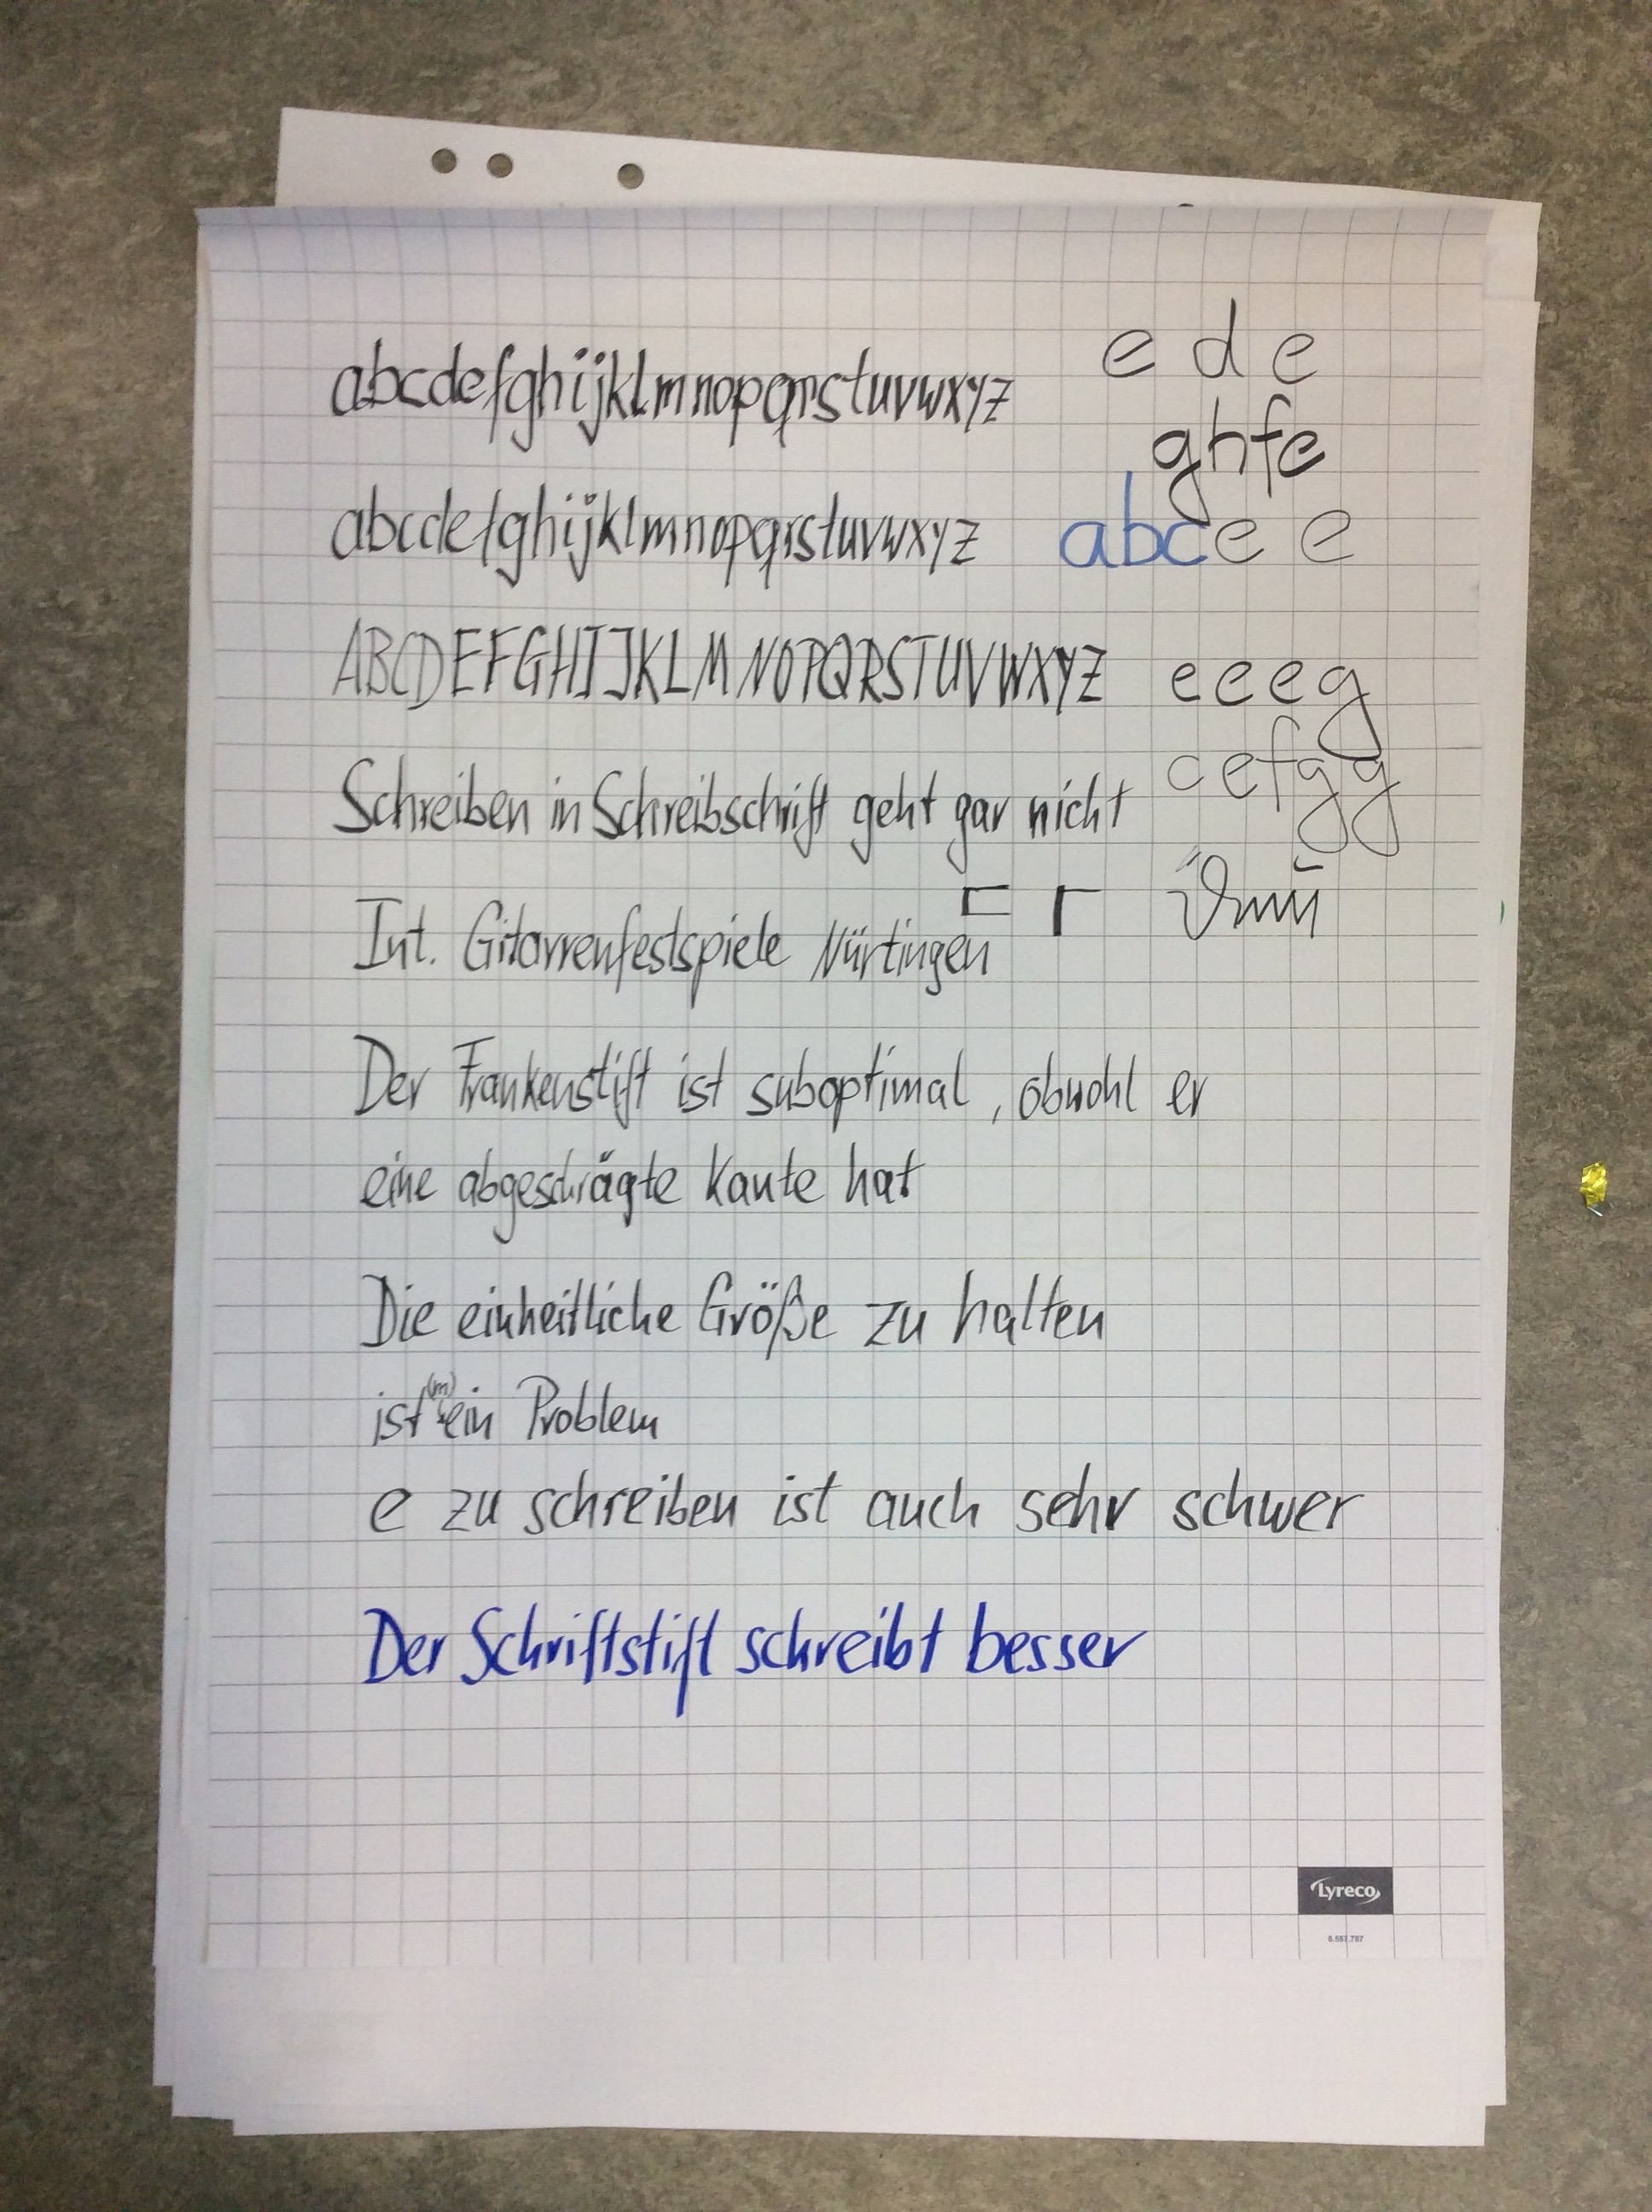 abcdefghijklmnopqrstuvwxyz
e d e
ghfe
abcdefghijklmnopqrstuvwxyz
abcee e
ABCDEFGHIJKLMNOPQRSTUVWXYZ
eeeg
cefgg
Schreiben in Schreibschrift geht gar nicht
Int. Gitarrenfestspiele Nürtingen
Der Frankenstift ist suboptimal, obwohl er
eine abgeschrägte Kante hat
Die einheitliche Größe zu halten
ist (m)ein Problem
e zu schreiben ist auch sehr schwer
Der Schriftstift schreibt besser
Lyreco
6.557.787